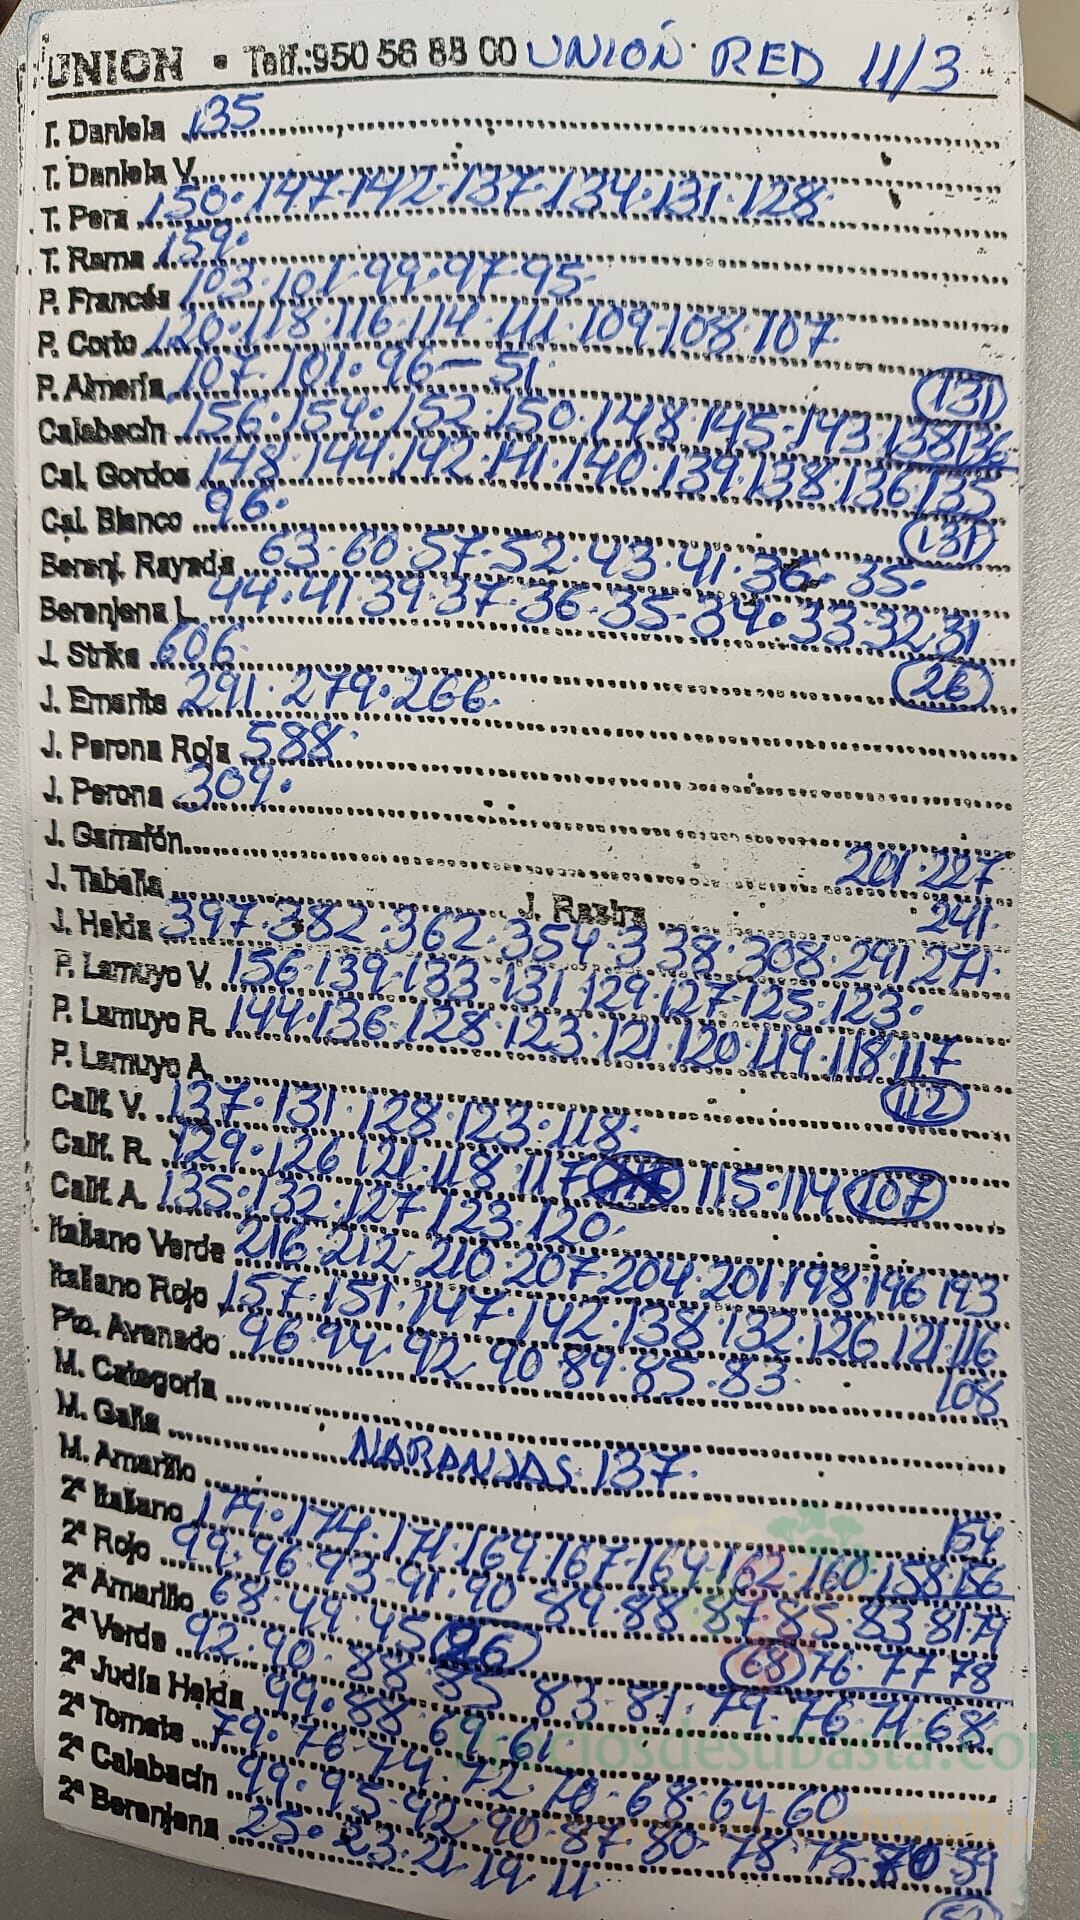 UNION • Telf.:950 56 88 00 UNIÓN RED 11/3
T. Daniela 135
T. Daniela V.
T. Pera 150·147·142·137·134·131·128
T. Rama 159·
P. Francés 103·101·99·97·95·
P. Corto 120·118·116·114·111·109·108·107
P. Almería 107·101·96—51 (131)
Calabacín 156·154·152·150·148·145·143·138 136
Cal. Gordos 148·144·142·141·140·139·138·136·135
Cal. Blanco 96· (131)
Berenj. Rayada 63·60·57·52·43·41·36·35·
Berenjena L. 44·41·39·37·36·35·34·33·32 31
J. Strike 606 (26)
J. Emerite 291·279·266·
J. Perona Roja 588·
J. Perona 309·
J. Garrafón
J. Tabella J. Rastra 201·227
J. Helda 397·382·362·354·338·308·291 271· 241
P. Lamuyo V. 156·139·133·131·129·127·125·123·
P. Lamuyo R. 144·136·128·123·121·120·119·118·117
P. Lamuyo A. (112)
Calif. V. 137·131·128·123·118·
Calif. R. 129·126 121·118·117 115·114 (107)
Calif. A. 135·132·127·123·120·
Italiano Verde 216·212·210·207·204·201 198·196 193
Italiano Rojo 157·151·147·142·138·132·126 121·116
Pto. Avenado 96·94·92·90·89·85·83· 108
M. Categoría
M. Galia NARANJAS 137·
M. Amarillo
2ª Italiano 179·174·171·169 167·164·162·160·158·156 154
2ª Rojo 99·96·93·91·90 89·88·87·85·83·81 79
2ª Amarillo 68·49·45 (26) (68) 76·77 78
2ª Verde 92·90·88·85 83·81·79·76·71·68
2ª Judía Helda 99·88·69·61
2ª Tomate 79·76·74·72·70·68·64·60
2ª Calabacín 99·95·92·90·87·80·78·75·70 59
2ª Berenjena 25·23·21·19·11·
Preciosdesubasta.com